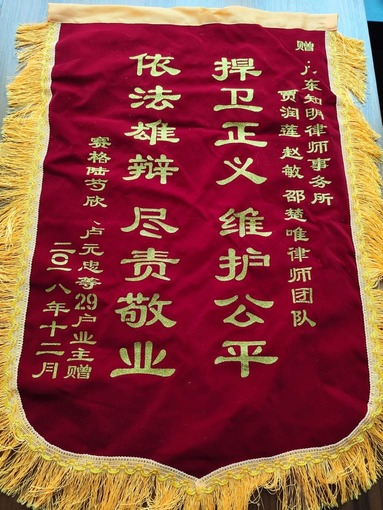 赠 广东知明律师事务所
贾润莲 赵敏 邵楚唯律师团队
捍卫正义 维护公平
依法雄辩 尽责敬业
赛格陆芍欣、卢元忠等29户业主赠
二〇一八年十二月